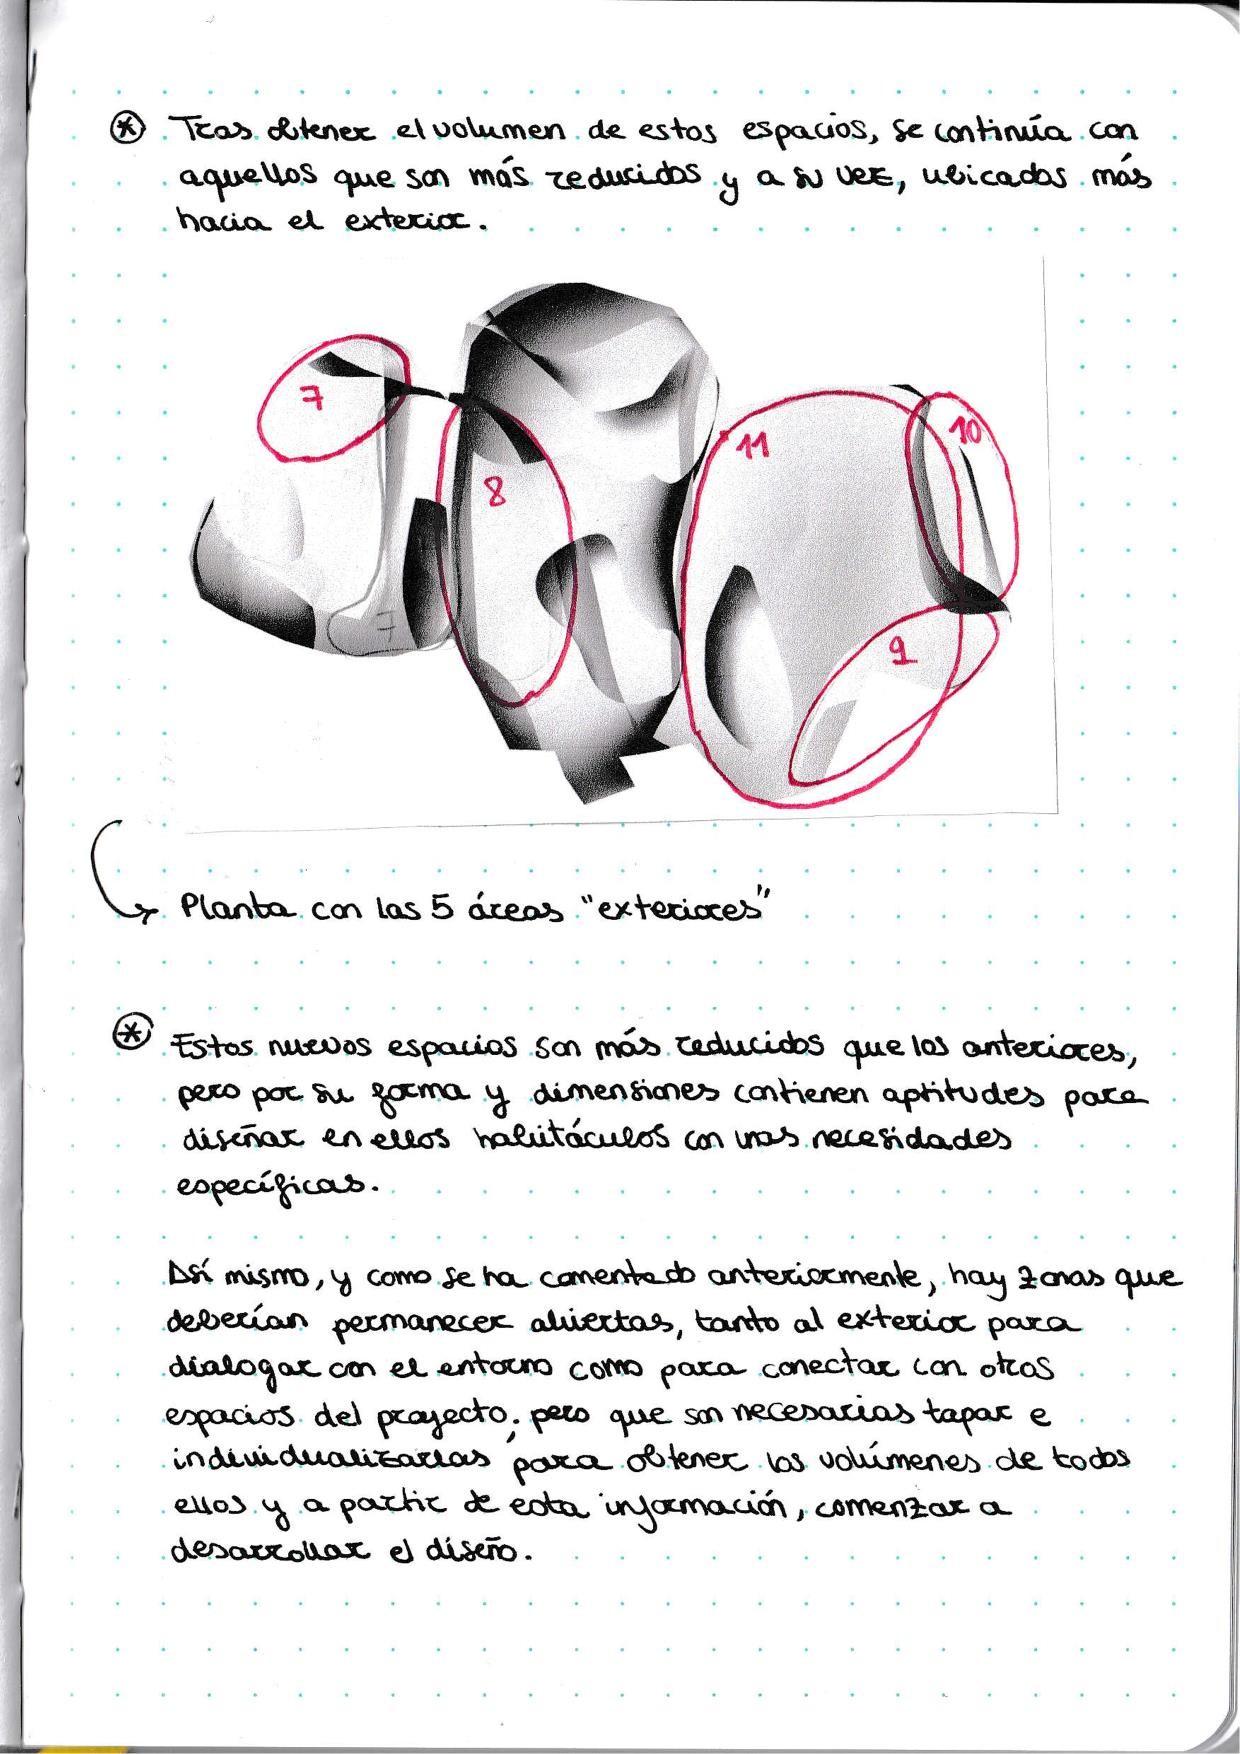 ⊛ Tras obtener el volumen de estos espacios, se continúa con
aquellos que son más reducidos y a su vez, ubicados más
hacia el exterior.
7
8
11
10
9
7
Planta con las 5 áreas "exteriores"
⊛ Estos nuevos espacios son más reducidos que los anteriores,
pero por su forma y dimensiones contienen aptitudes para
diseñar en ellos habitáculos con unas necesidades
específicas.
Así mismo, y como se ha comentado anteriormente, hay zonas que
deberían permanecer abiertas, tanto al exterior para
dialogar con el entorno como para conectar con otros
espacios del proyecto, pero que son necesarias tapar e
individualizarlas para obtener los volúmenes de todos
ellos y a partir de esta información, comenzar a
desarrollar el diseño.